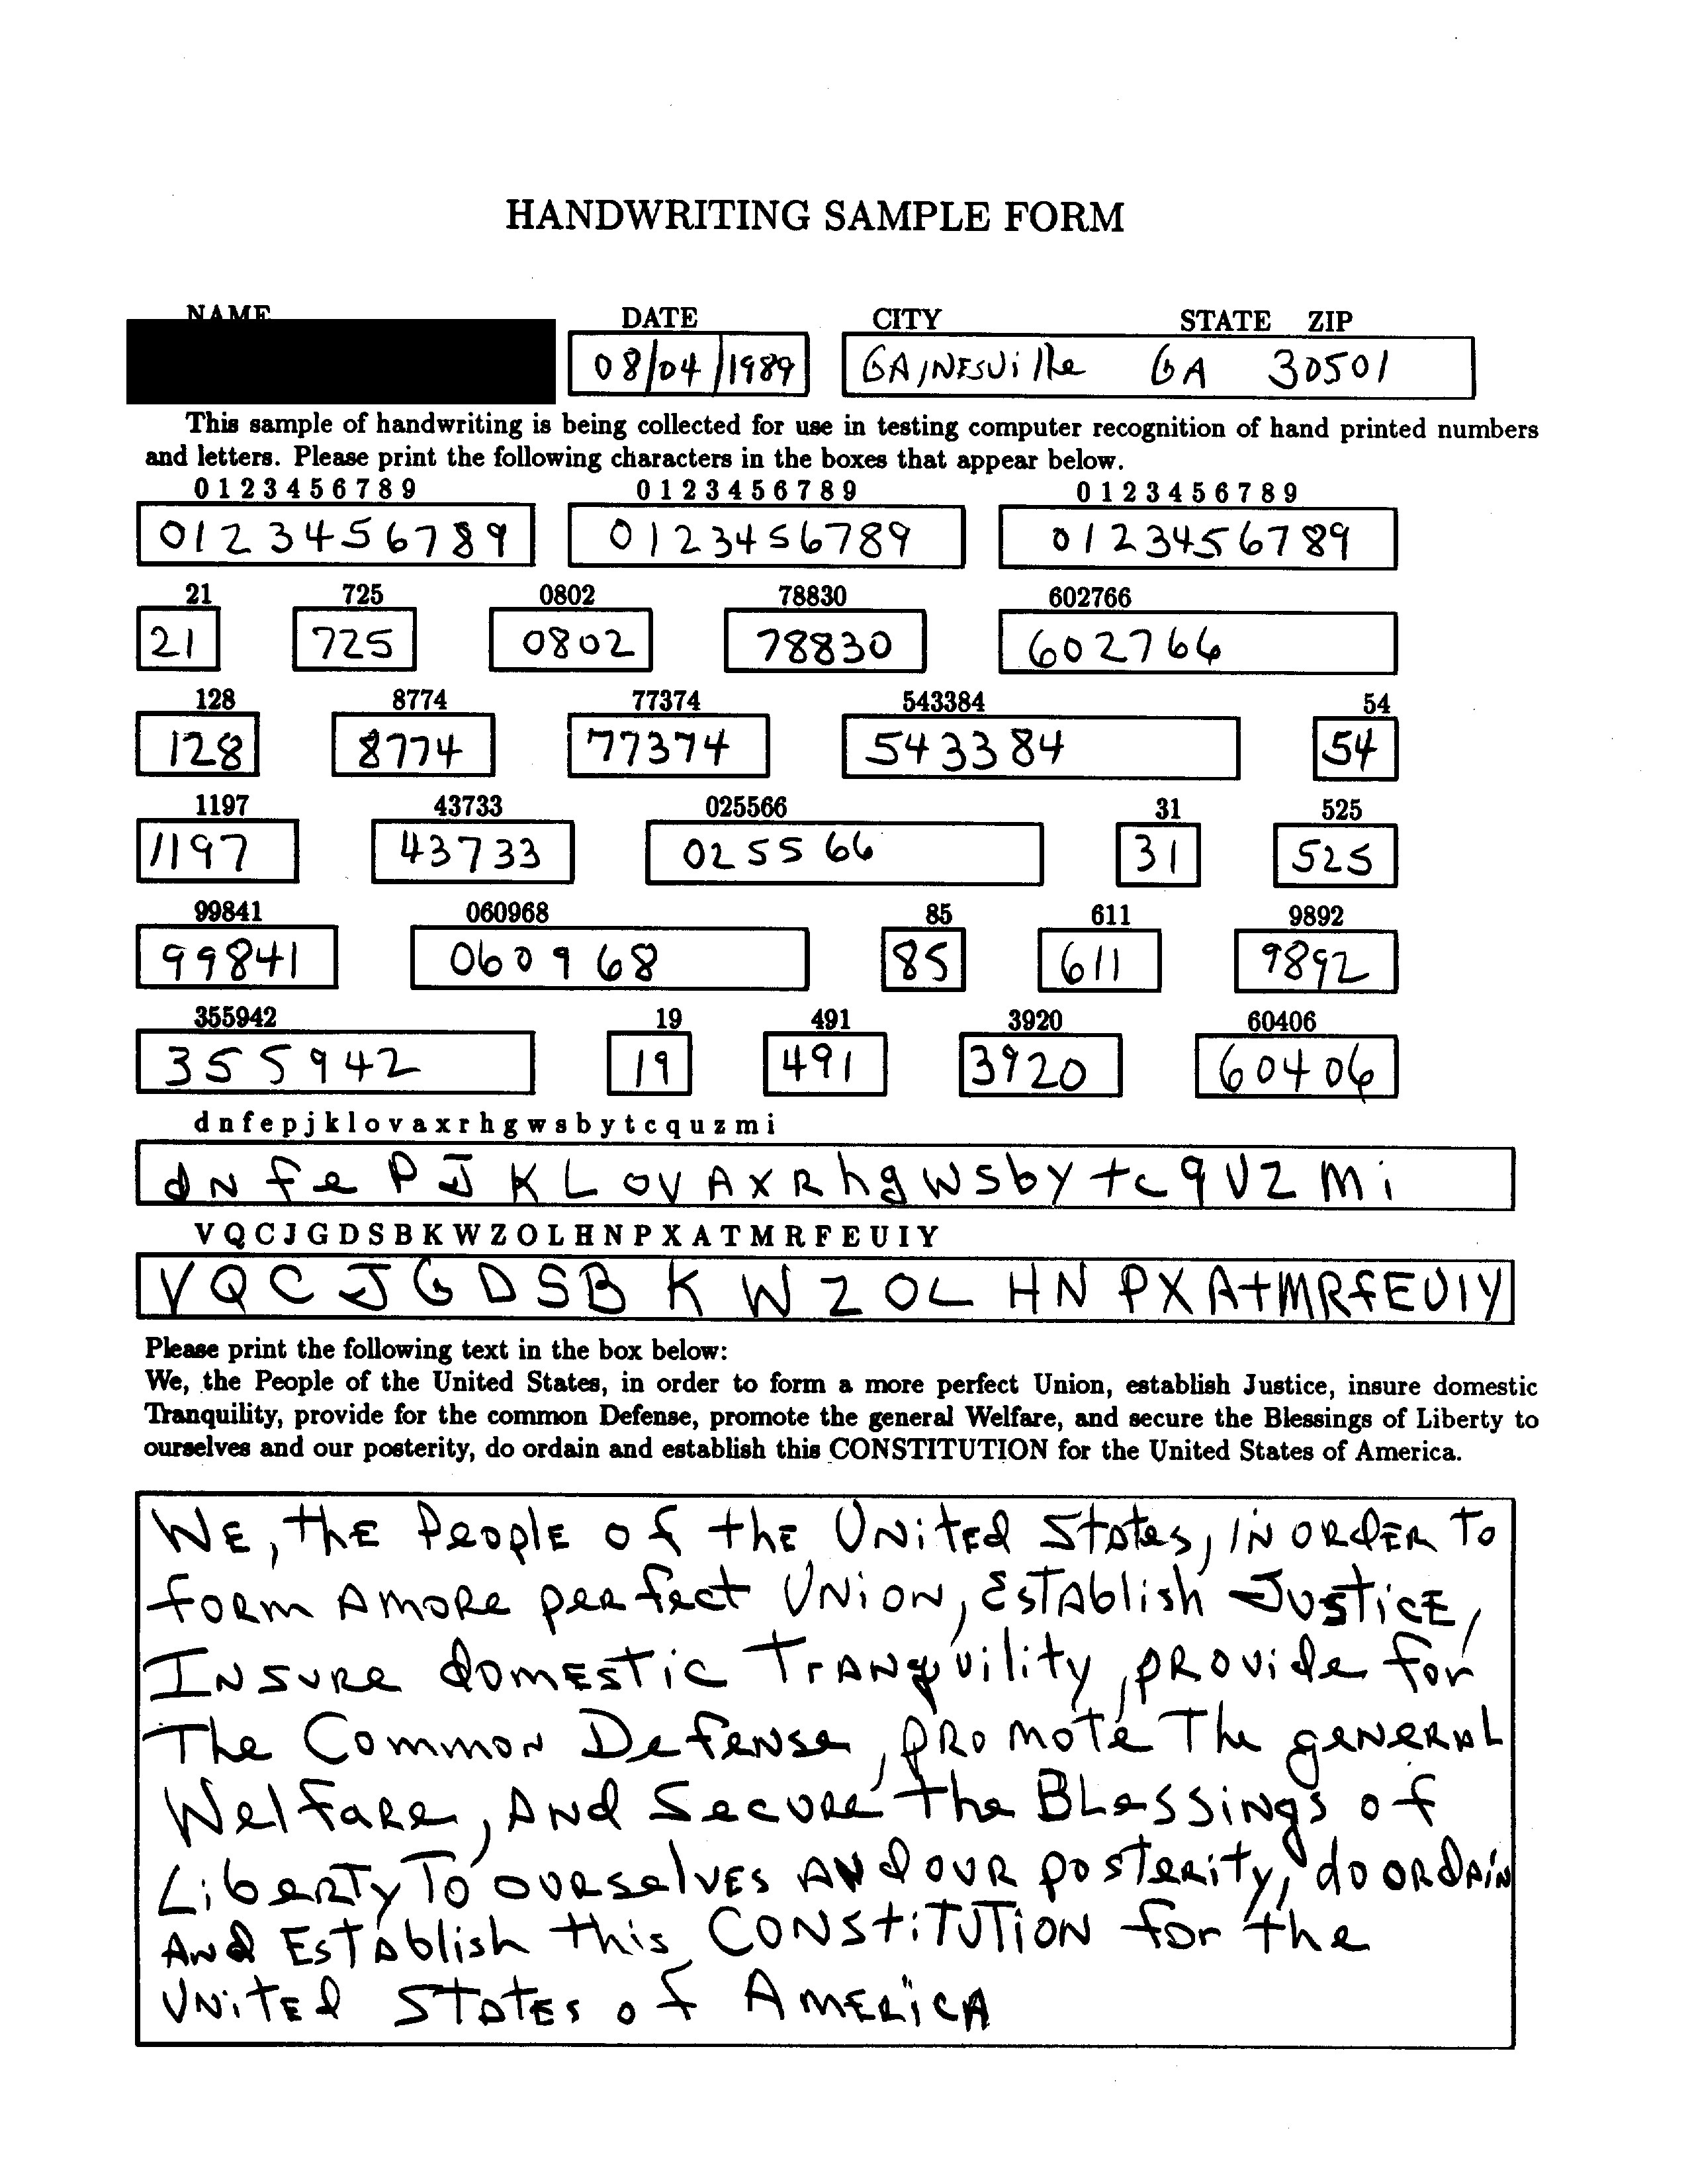 HANDWRITING SAMPLE FORM
NAME DATE CITY STATE ZIP
08/04/1989 GAINESVille GA 30501
This sample of handwriting is being collected for use in testing computer recognition of hand printed numbers
and letters. Please print the following characters in the boxes that appear below.
0 1 2 3 4 5 6 7 8 9 0 1 2 3 4 5 6 7 8 9 0 1 2 3 4 5 6 7 8 9
0123456789 0123456789 0123456789
21 725 0802 78830 602766
21 725 0802 78830 602766
128 8774 77374 543384 54
128 8774 77374 543384 54
1197 43733 025566 31 525
1197 43733 025566 31 525
99841 060968 85 611 9892
99841 060968 85 611 9892
355942 19 491 3920 60406
355942 19 491 3920 60406
d n f e p j k l o v a x r h g w s b y t c q u z m i
d N f e P J K L o v A x R h g w s b y t c q U Z M i
V Q C J G D S B K W Z O L H N P X A T M R F E U I Y
V Q C J G D S B K W Z O L H N P X A t M R f E U I Y
Please print the following text in the box below:
We, the People of the United States, in order to form a more perfect Union, establish Justice, insure domestic
Tranquility, provide for the common Defense, promote the general Welfare, and secure the Blessings of Liberty to
ourselves and our posterity, do ordain and establish this CONSTITUTION for the United States of America.
WE, thE PeoplE of thE UNiTEd STATes, iN ORdER To
foRm A moRe peRfect UNioN, EsTAblish JusTiCE,
INSURe domESTic TrANquility, pRovide for
The CommoN DefeNse, pRomoTe The geNERAL
WelfaRe, ANd SecuRe the BLessiNgs of
LibeRTy To ouRselVEs ANd ouR posteRity, do ORdAiN
ANd EsTAblish this CONStiTUTiON for the
UNiTEd STATEs of AMERiCA